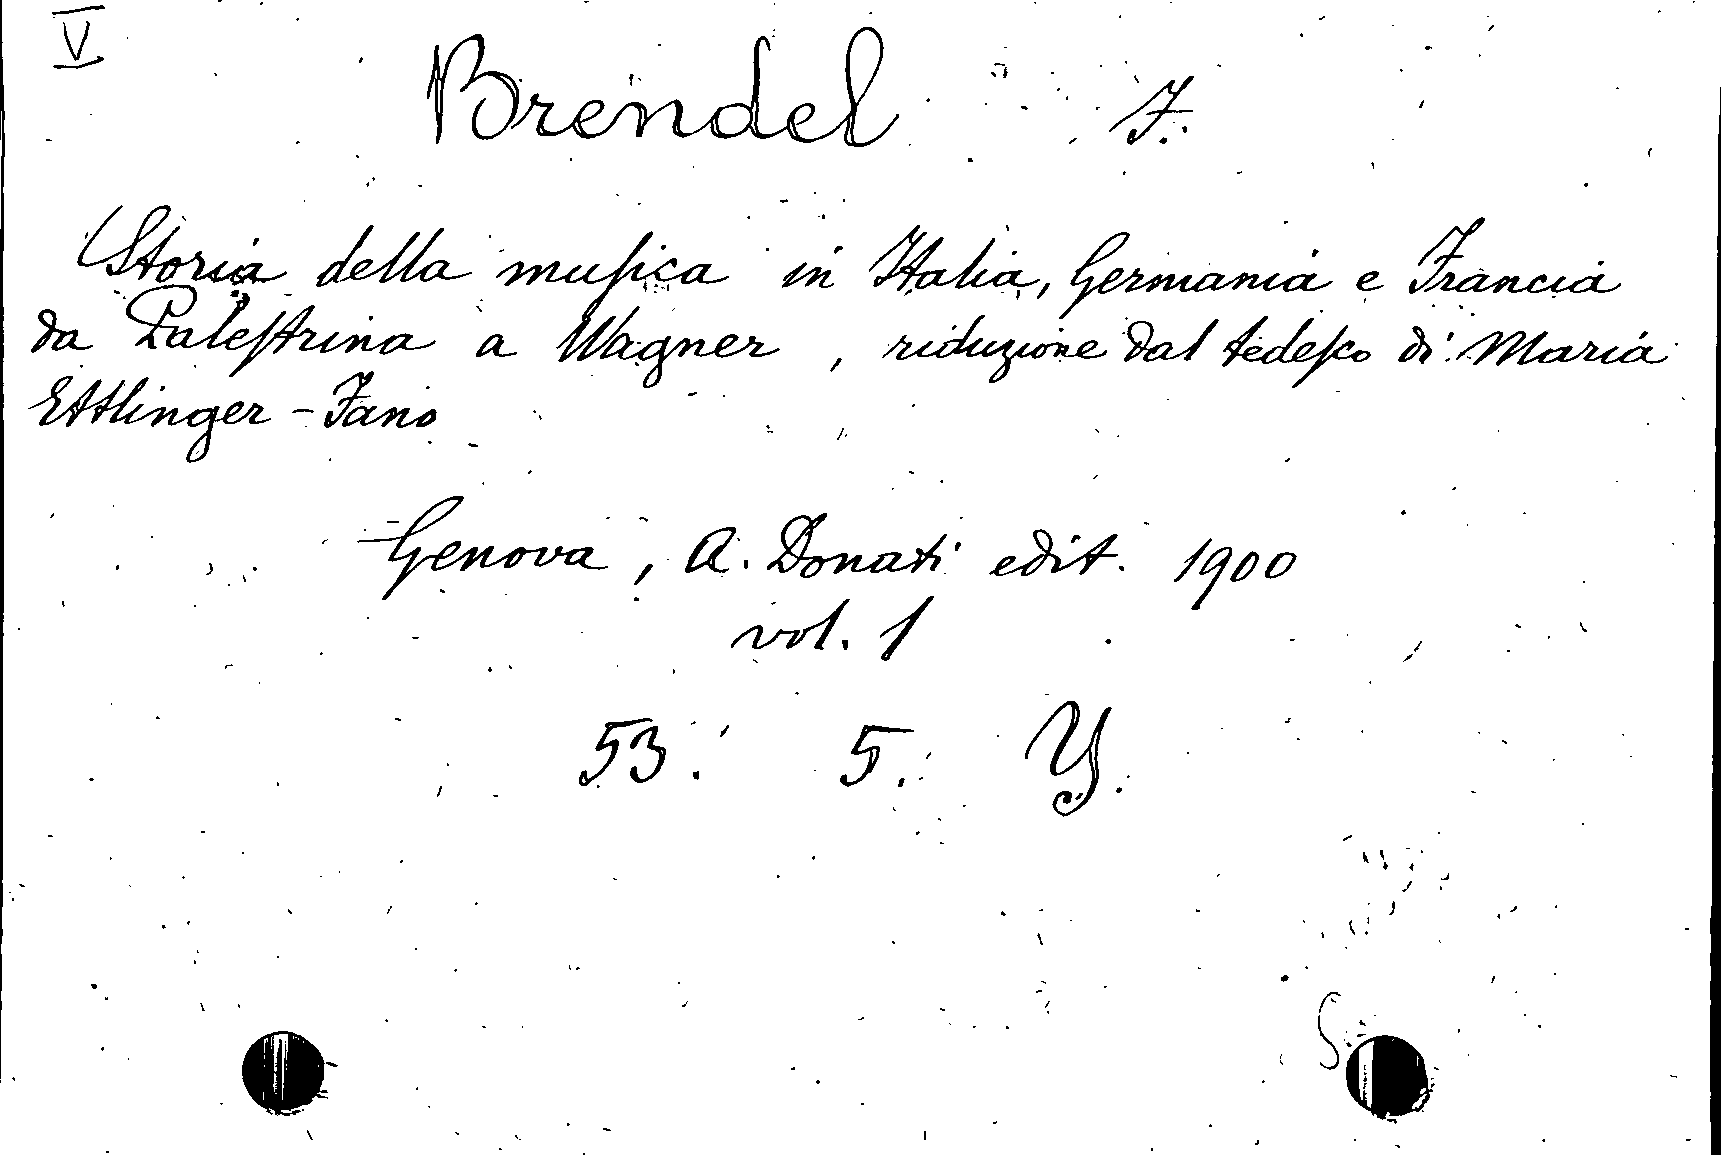 V
Brendel F.
Storia della musica in Italia, Germania e Francia
da Palestrina a Wagner, riduzione dal tedesco di Maria
Ettlinger-Fano
Genova, A. Donati edit. 1900
vol. 1
53. 5. Y.
S